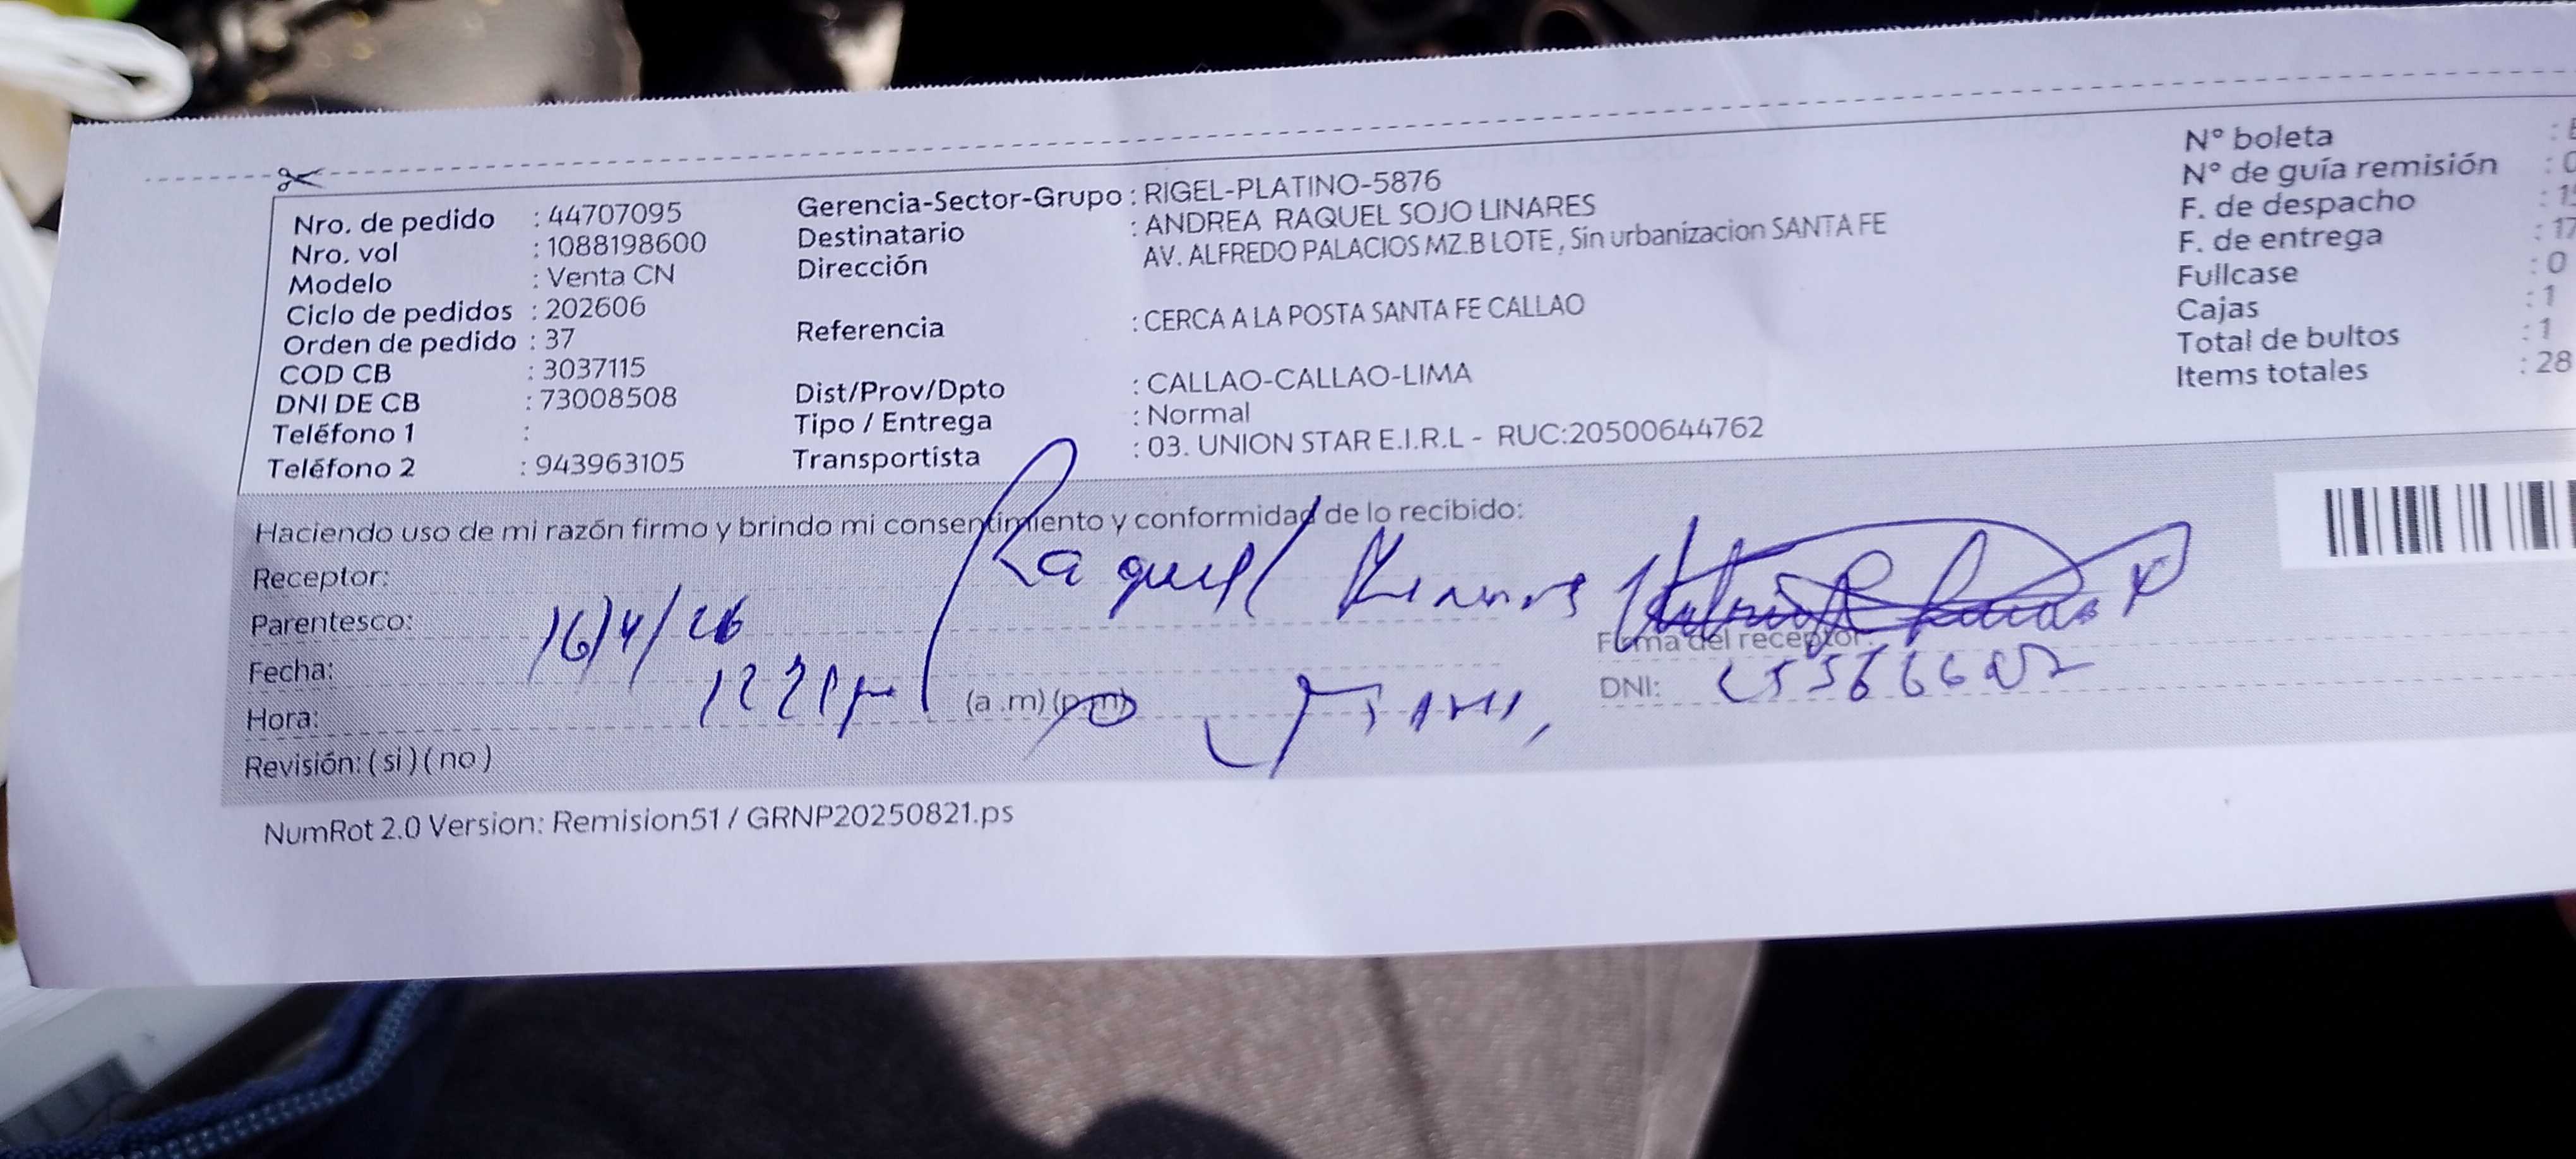 Nro. de pedido : 44707095
Nro. vol : 1088198600
Modelo : Venta CN
Ciclo de pedidos : 202606
Orden de pedido : 37
COD CB : 3037115
DNI DE CB : 73008508
Teléfono 1 :
Teléfono 2 : 943963105
Gerencia-Sector-Grupo : RIGEL-PLATINO-5876
Destinatario : ANDREA RAQUEL SOJO LINARES
Dirección AV. ALFREDO PALACIOS MZ.B LOTE , Sin urbanizacion SANTA FE
Referencia : CERCA A LA POSTA SANTA FE CALLAO
Dist/Prov/Dpto : CALLAO-CALLAO-LIMA
Tipo / Entrega : Normal
Transportista : 03. UNION STAR E.I.R.L - RUC:20500644762
N° boleta :
N° de guía remisión : 0
F. de despacho :
F. de entrega : 17
Fullcase : 0
Cajas : 1
Total de bultos : 1
Items totales : 28
Haciendo uso de mi razón firmo y brindo mi consentimiento y conformidad de lo recibido:
Receptor: Raquel
Parentesco:
Fecha: 16/4/26
Hora: (a .m) (p.m)
Revisión: ( si ) ( no )
Firma del receptor:
DNI:
NumRot 2.0 Version: Remision51 / GRNP20250821.ps